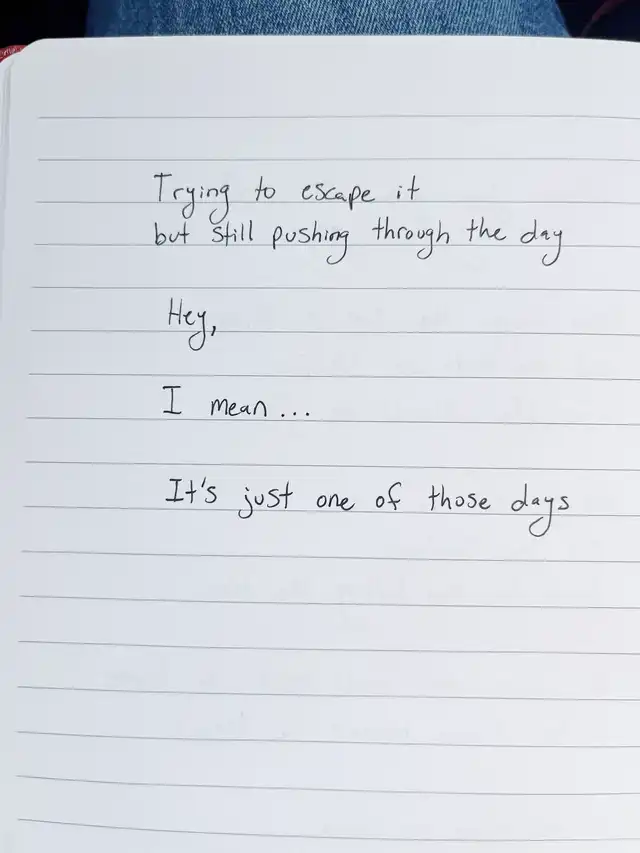 Trying to escape it
but still pushing through the day
Hey,
I mean...
It's just one of those days